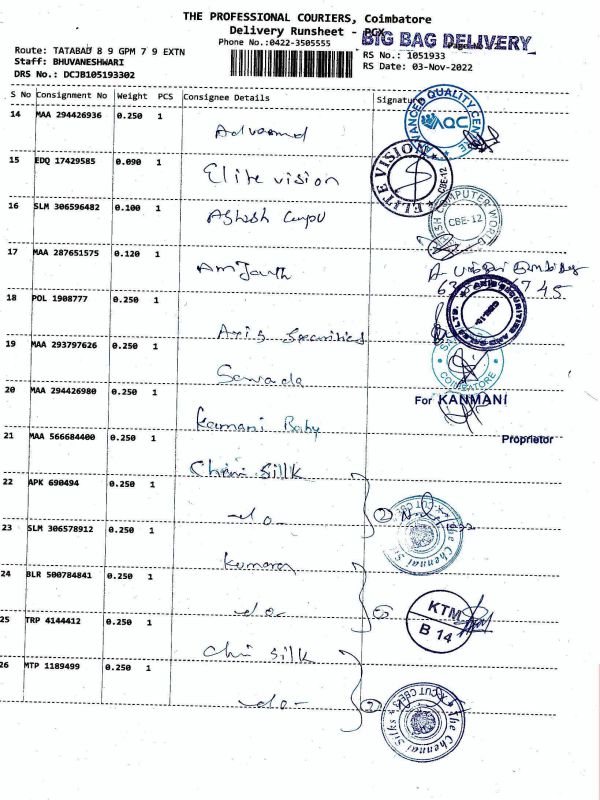 THE PROFESSIONAL COURIERS, Coimbatore
Delivery Runsheet - PCX
Phone No.:0422-3505555
BIG BAG DELIVERY
Route: TATABAD 8 9 GPM 7 9 EXTN
RS No.: 1051933
Staff: BHUVANESHWARI
RS Date: 03-Nov-2022
DRS No.: DCJB105193302
S No Consignment No Weight PCS Consignee Details Signature
14 MAA 294426936 0.250 1
ADVANCED QUALITY CENTRE
AQC
15 EDQ 17429585 0.090 1 Elite vision
ELITE VISION
CBE-12
16 SLM 306596482 0.100 1 Ashish
COMPUTER WORLD
CBE-12
17 MAA 287651575 0.120 1
18 POL 1908777 0.250 1 Axis Securities
19 MAA 293797626 0.250 1 Sawada
COIMBATORE
20 MAA 294426980 0.250 1 Kanmani Baby
For KANMANI
Proprietor
21 MAA 566684400 0.250 1 Chni Sillk
22 APK 690494 0.250 1 -do-
The Chennai Silks
23 SLM 306578912 0.250 1 Kumaran
24 BLR 500784841 0.250 1 -do-
KTM
B 14
25 TRP 4144412 0.250 1 Chni Silk
26 MTP 1189499 0.250 1 -do-
2
The Chennai Silks